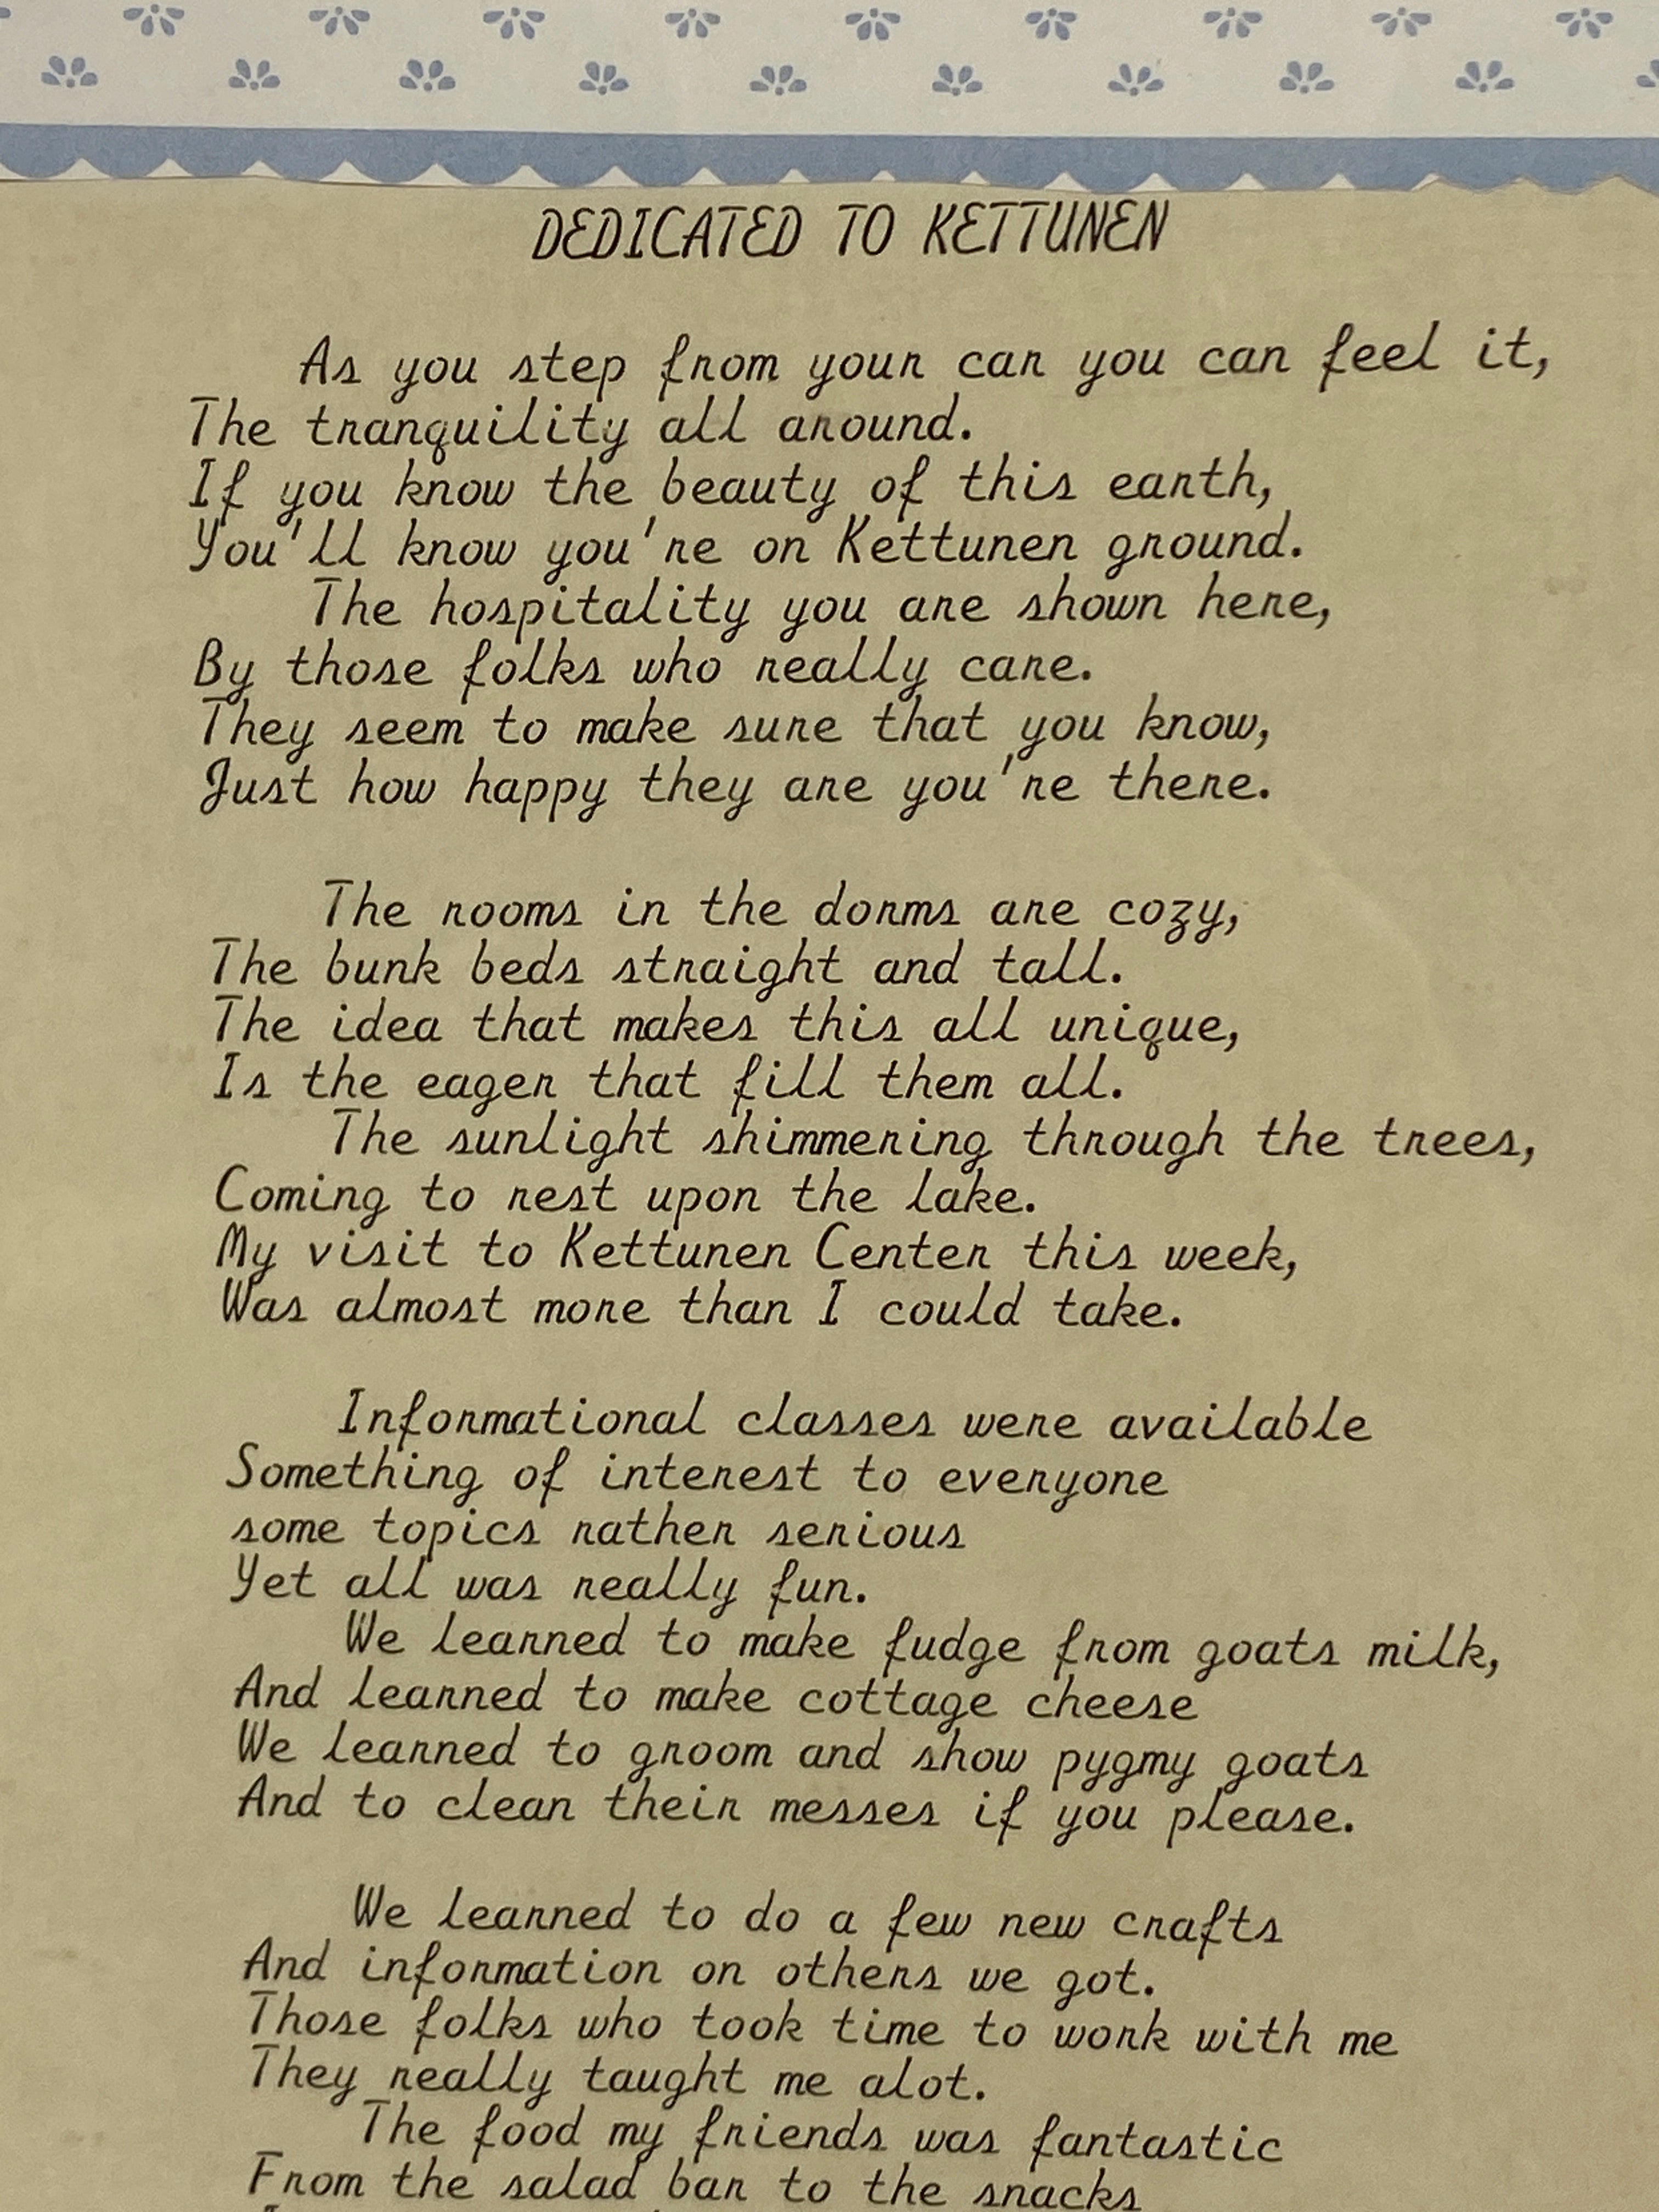 DEDICATED TO KETTUNEN
As you step from your car you can feel it,
The tranquility all around.
If you know the beauty of this earth,
You'll know you're on Kettunen ground.
The hospitality you are shown here,
By those folks who really care.
They seem to make sure that you know,
Just how happy they are you're there.
The rooms in the dorms are cozy,
The bunk beds straight and tall.
The idea that makes this all unique,
Is the eager that fill them all.
The sunlight shimmering through the trees,
Coming to rest upon the lake.
My visit to Kettunen Center this week,
Was almost more than I could take.
Informational classes were available
Something of interest to everyone
some topics rather serious
Yet all was really fun.
We learned to make fudge from goats milk,
And learned to make cottage cheese
We learned to groom and show pygmy goats
And to clean their messes if you please.
We learned to do a few new crafts
And information on others we got.
Those folks who took time to work with me
They really taught me alot.
The food my friends was fantastic
From the salad bar to the snacks